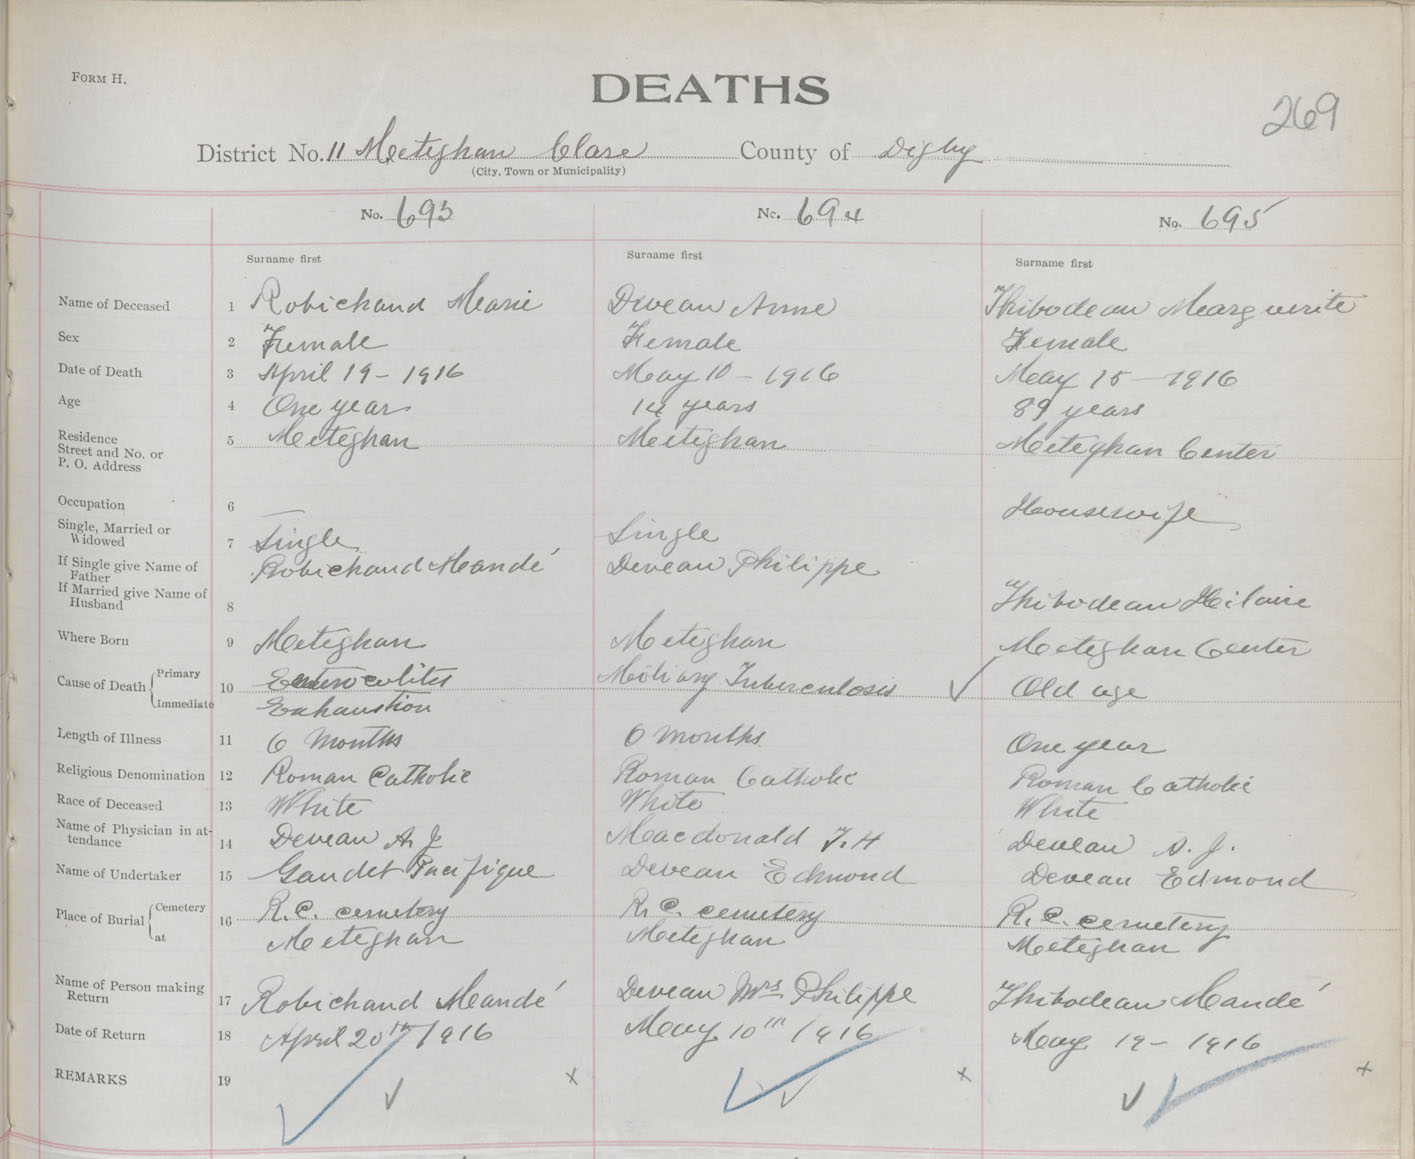 FORM H.
DEATHS
269
District No. 11 Meteghan Clare County of Digby
(City, Town or Municipality)
No. 693 No. 694 No. 695
Surname first Surname first Surname first
Name of Deceased 1 Robichaud Marie Deveau Anne Thibodeau Marguerite
Sex 2 Female Female Female
Date of Death 3 April 19 - 1916 May 10 - 1916 May 15 - 1916
Age 4 One year 14 years 89 years
Residence Street and No. or P. O. Address 5 Meteghan Meteghan Meteghan Center
Occupation 6 — Housewife
Single, Married or Widowed 7 Single Single
If Single give Name of Father Robichaud Mandé Deveau Philippe
If Married give Name of Husband 8 Thibodeau Hilaire
Where Born 9 Meteghan Meteghan Meteghan Center
Cause of Death Primary 10 Entero colites Miliary Tuberculosis ✓ Old age
Immediate Exhaustion
Length of Illness 11 6 Months 6 months One year
Religious Denomination 12 Roman Catholic Roman Catholic Roman Catholic
Race of Deceased 13 White White White
Name of Physician in attendance 14 Deveau A. J. Macdonald T. H Deveau A. J.
Name of Undertaker 15 Gaudet Pacifique Deveau Edmond Deveau Edmond
Place of Burial Cemetery 16 R. C. cemetery R. C. cemetery R. C. cemetery
at Meteghan Meteghan Meteghan
Name of Person making Return 17 Robichaud Mandé Deveau Mrs Philippe Thibodeau Mandé
Date of Return 18 April 20th 1916 May 10th 1916 May 19 - 1916
REMARKS 19 ✓ ✓ x ✓ ✓ x ✓ ✓ x